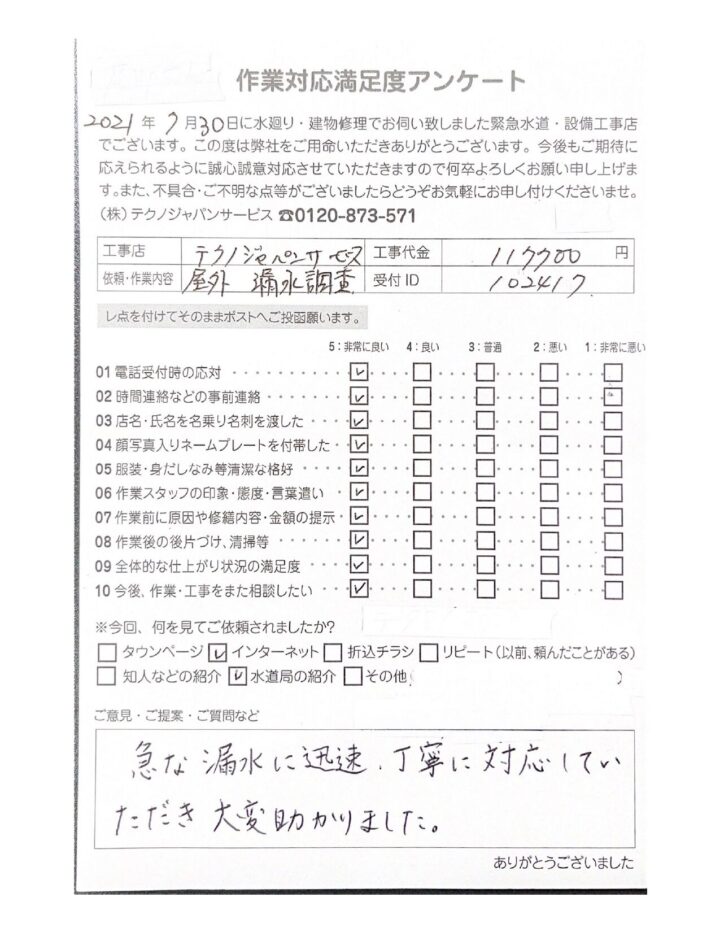 作業対応満足度アンケート
2021年7月30日に水廻り・建物修理でお伺い致しました緊急水道・設備工事店
でございます。この度は弊社をご用命いただきありがとうございます。今後もご期待に
応えられるように誠心誠意対応させていただきますので何卒よろしくお願い申し上げま
す。また、不具合・ご不明な点等がございましたらどうぞお気軽にお申し付けくださいませ。
(株)テクノジャパンサービス ☎0120-873-571
工事店 テクノジャパンサービス 工事代金 117700 円
依頼・作業内容 屋外 漏水調査 受付ID 102417
レ点を付けてそのままポストへご投函願います。
5:非常に良い 4:良い 3:普通 2:悪い 1:非常に悪い
01 電話受付時の応対
02 時間連絡などの事前連絡
03 店名・氏名を名乗り名刺を渡した
04 顔写真入りネームプレートを付帯した
05 服装・身だしなみ等清潔な格好
06 作業スタッフの印象・態度・言葉遣い
07 作業前に原因や修繕内容・金額の提示
08 作業後の後片づけ、清掃等
09 全体的な仕上がり状況の満足度
10 今後、作業・工事をまた相談したい
※今回、何を見てご依頼されましたか?
タウンページ インターネット 折込チラシ リピート(以前、頼んだことがある)
知人などの紹介 水道局の紹介 その他( )
ご意見・ご提案・ご質問など
急な漏水に迅速、丁寧に対応してい
ただき大変助かりました。
ありがとうございました